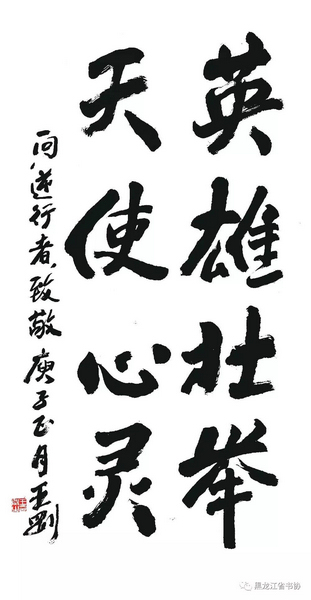 英雄壮举
天使心灵
向逆行者致敬 庚子正月 王刚
黑龙江省书协